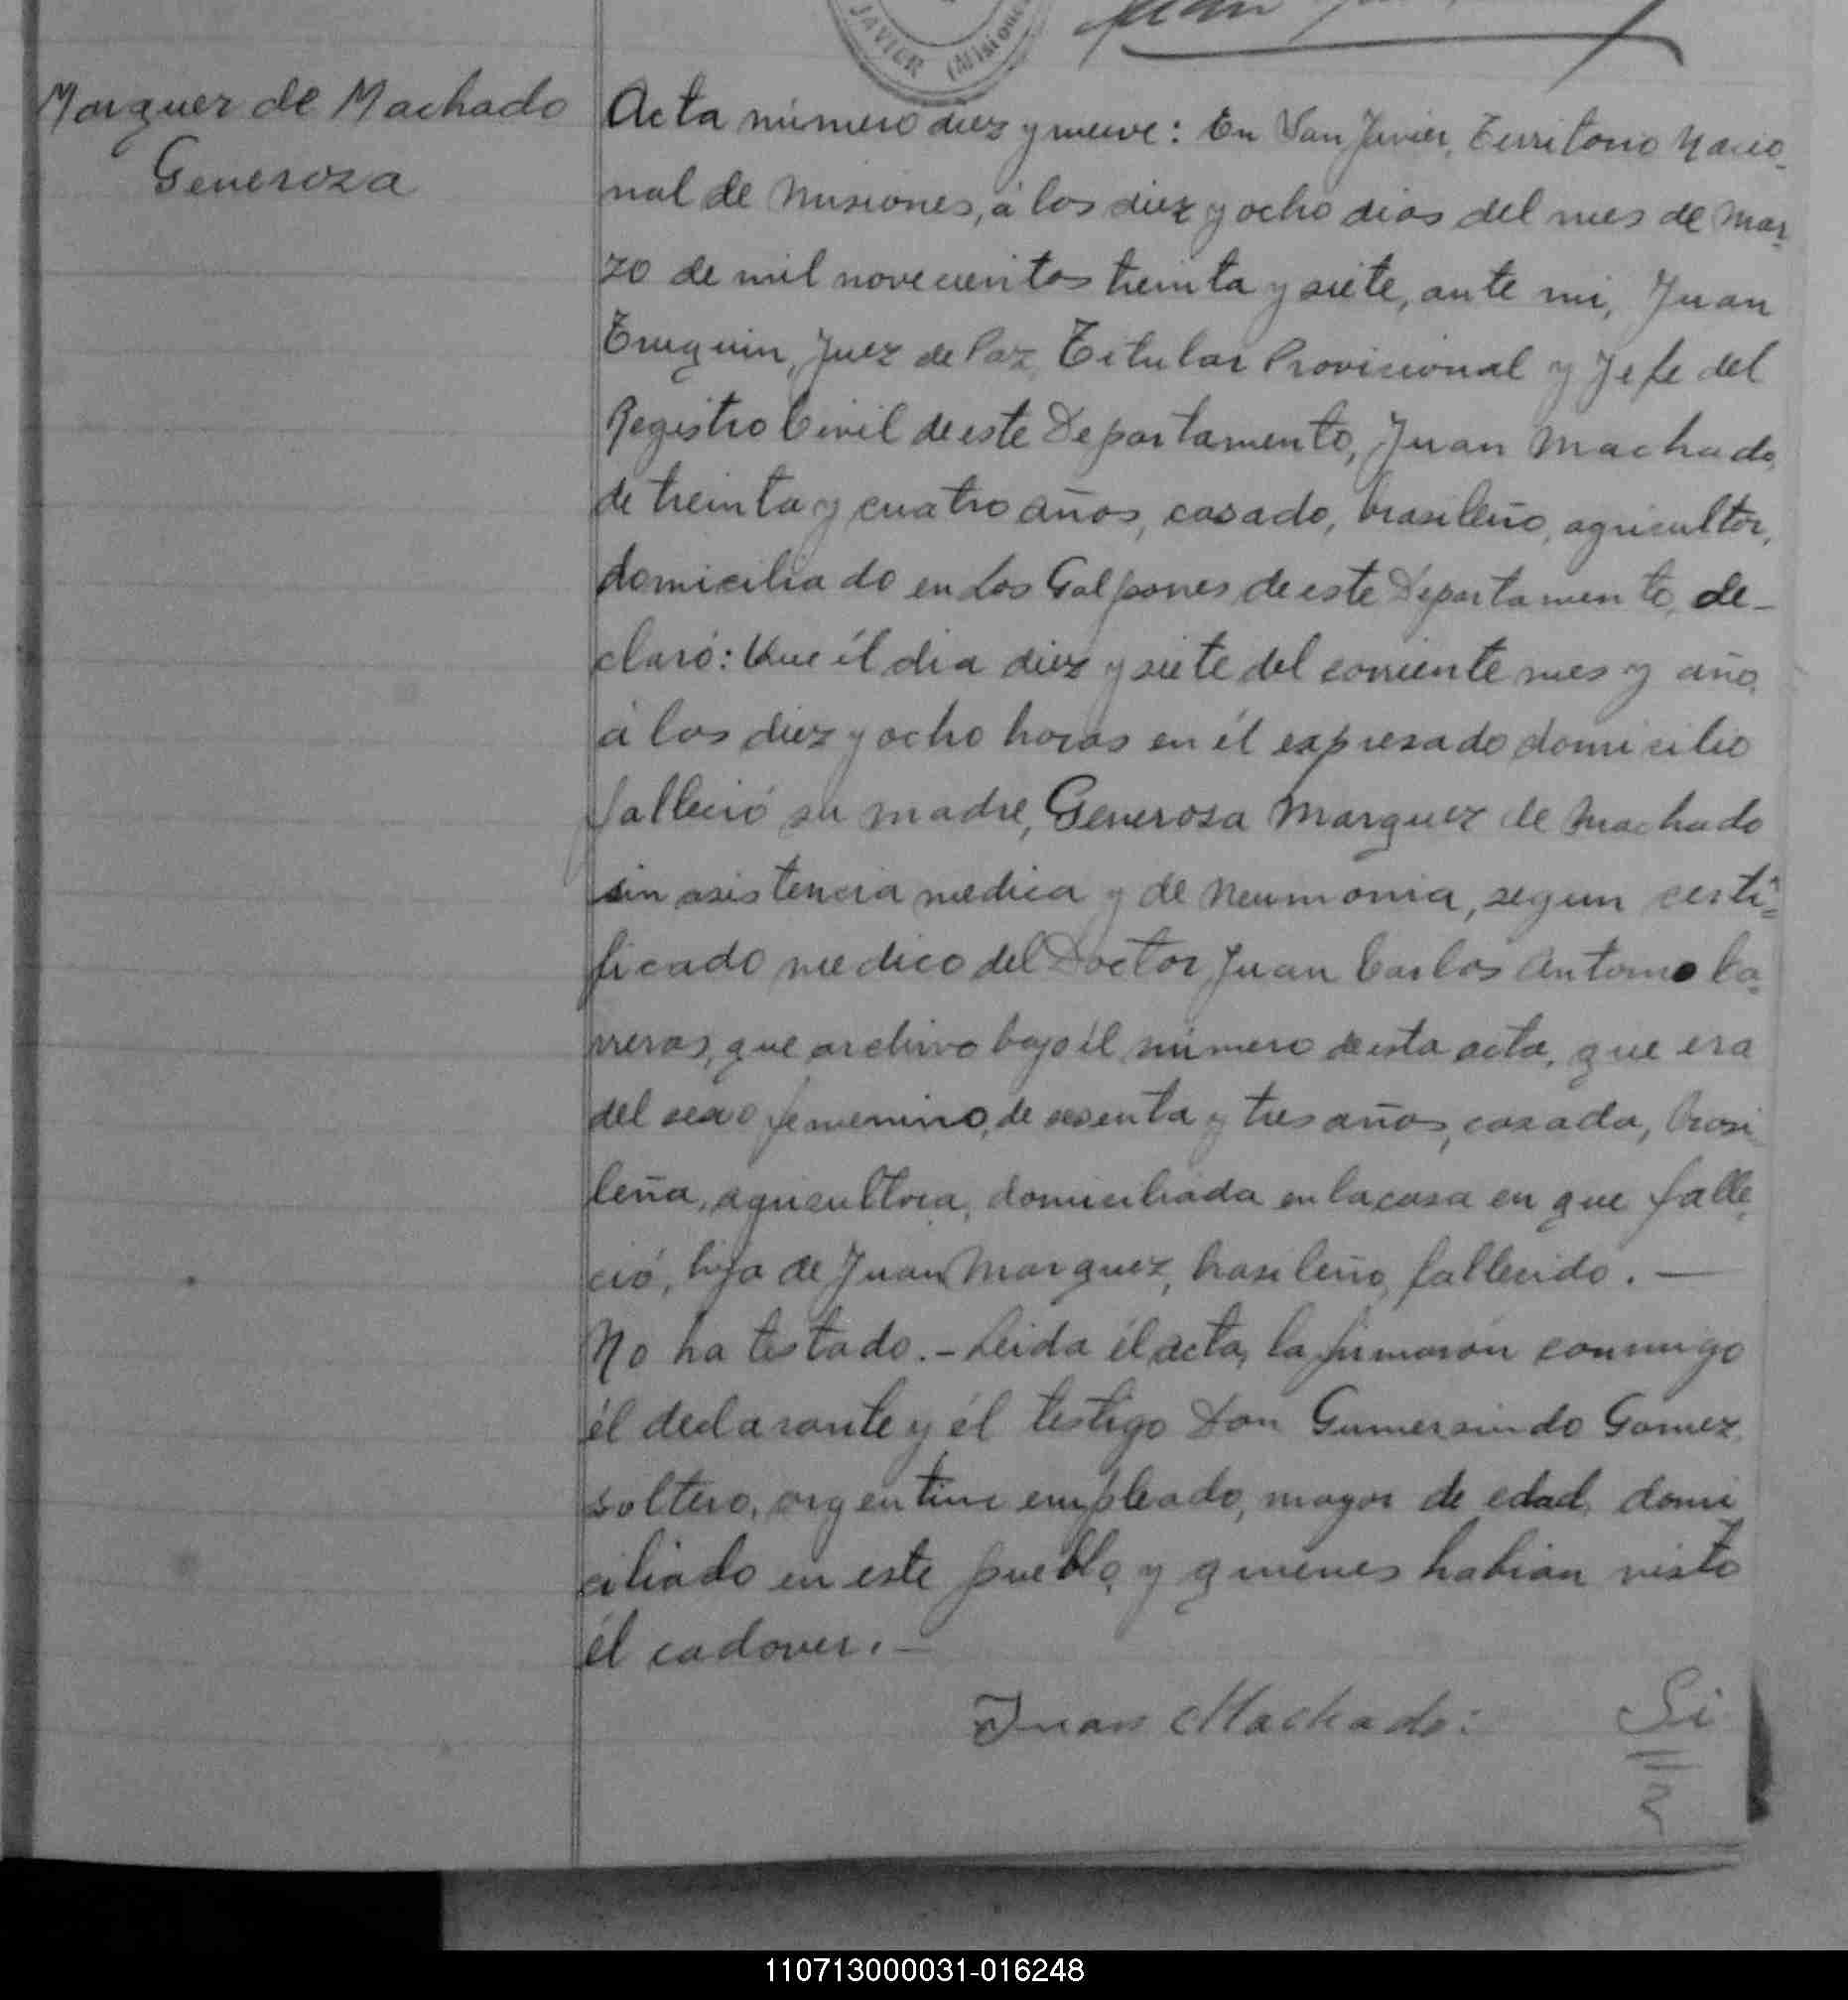 JAVIER (Misiones
Marquez de Machado
Generoza
Acta número diez y nueve: En San Javier, Territorio Nacio-
nal de Misiones, á los diez y ocho dias del mes de Mar-
zo de mil novecientos treinta y siete, ante mi, Juan
Truquin, Juez de Paz Titular Provisional y Jefe del
Registro Civil de este Departamento, Juan Machado,
de treinta y cuatro años, casado, brasileño, agricultor,
domiciliado en Los Galpones de este Departamento, de-
claró: Que él dia diez y siete del corriente mes y año,
á las diez y ocho horas en él expresado domicilio
falleció su madre, Generosa Marquez de Machado
sin asistencia medica y de Neumonia, segun certi-
ficado medico del Doctor Juan Carlos Antonio Ca-
rreras, que archivo bajo él número de esta acta, que era
del sexo femenino, de sesenta y tres años, casada, brasi
leña, agricultora, domiciliada en la casa en que falle-
ció, hija de Juan Marquez, brasileño, fallecido. —
No ha testado. - Leida él acta, la firmaron conmigo
él declarante y él testigo Don Gumersindo Gomez,
soltero, argentino empleado, mayor de edad, domi
ciliado en este pueblo, y quienes habian visto
él cadaver. —
Juan Machado:
Si
110713000031-016248